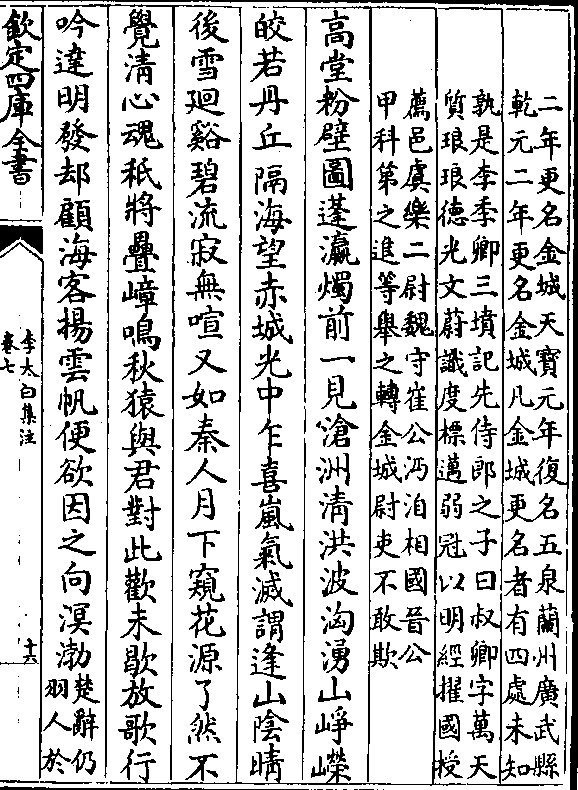 二年更名金城天寶元年復名五泉蘭州廣武縣
乾元二年更名金城凡金城更名者有四處未知
孰是李季卿三墳記先侍郎之子曰叔卿字萬天
質琅琅德光文蔚識度標邁弱冠以明經擢國授
薦邑虞樂二尉魏守崔公沔洎相國晉公
甲科第之進等舉之轉金城尉吏不敢欺
高堂粉壁圖蓬瀛燭前一見滄洲清洪波洶湧山崢嶸
皎若丹丘隔海望赤城光中乍喜嵐氣滅謂逢山陰晴
後雪廻谿碧流寂無喧又如秦人月下窺花源了然不
覺清心魂秖將疊嶂鳴秋猿與君對此歡未歇放歌行
吟達明發却顧海客揚雲帆便欲因之向溟渤
楚辭仍
羽人於
欽定四庫全書
李太白集注
卷七
十六